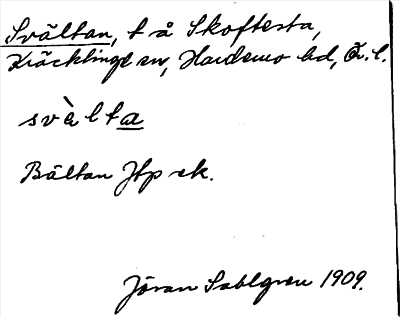 Svältan, t å Skoftesta,
Kräcklinge sn, Hardemo hd, Ör. l.
svàlta
Bältan Jtp ek.
Jöran Sahlgren 1909.